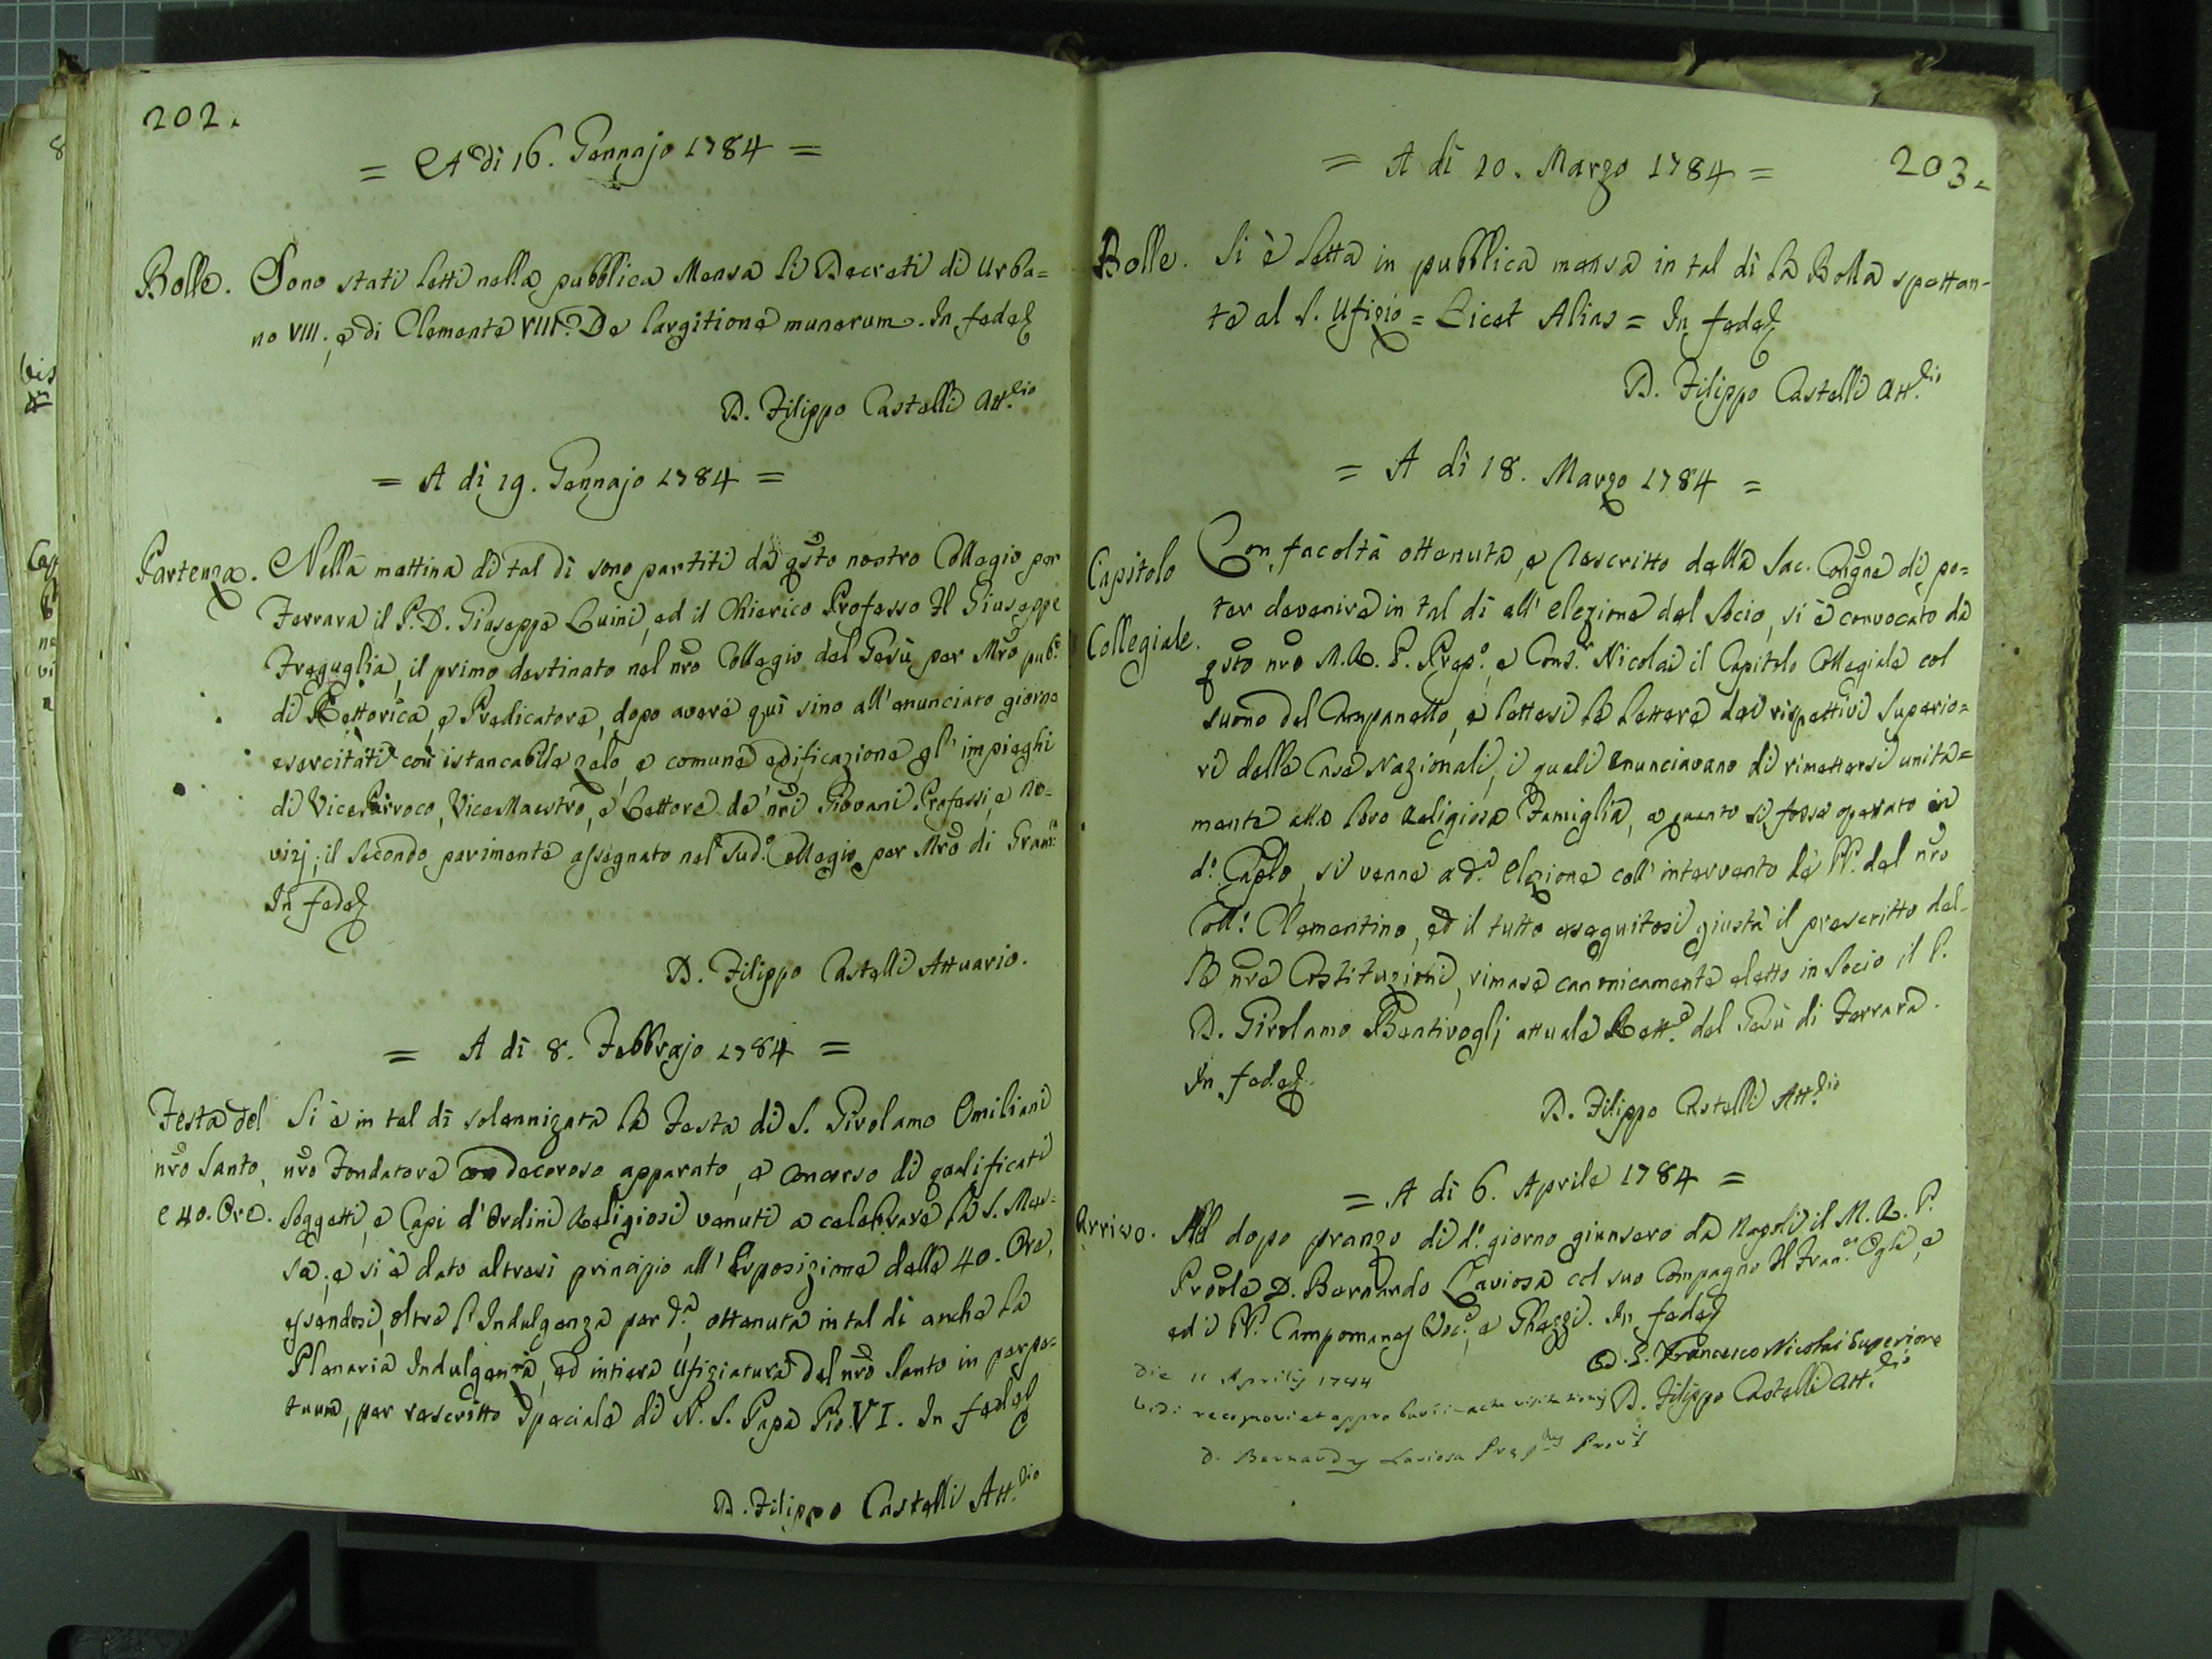 202.
= A dì 16. Gennajo 1784 =
Bolle. Sono stati letti nella pubblica Mensa li Decreti di Urba=
no VIII., e di Clemente VIII. De largitione munerum. In fede
D. Filippo Castelli Att.rio
= A dì 19. Gennajo 1784 =
Partenza. Nella mattina di tal dì sono partiti da qsto nostro Collegio per
Ferrara il P. D. Giuseppe Luini, ed il Chierico Professo Il Giuseppe
Freguglia, il primo destinato nel nro Collegio del Gesù per Mro pub.
di Rettorica, e Predicatore, dopo avere quì sino all' enunciato giorno
esercitati con istancabile zelo, e comune edificazione gl' impieghi
di ViceParroco, ViceMaestro, e Lettore de' nri Giovani Professi, e No=
vizj; il secondo parimente assegnato nel sud.o Collegio per Mro di Gram.
In fede
D. Filippo Castelli Attuario.
= A dì 8. Febbrajo 1784 =
Festa del nro Santo, e 40. Ore.
Si è in tal dì solennizata la Festa di S. Girolamo Emiliani
nro Fondatore con decoroso apparato, e concorso di qualificati
Soggetti, e Capi d' Ordini Religiosi venuti a celebrare la S. Mes=
sa; e si è dato altresì principio all' Esposizione delle 40. Ore,
essendosi, oltre l' Indulgenza per d.a, ottenuta in tal dì anche la
Plenaria Indulgenza, ed intiera Ufiziatura del nro Santo in perpe=
tuum, per rescritto speciale di N. S. Papa Pio VI. In fede
D. Filippo Castelli Att.rio
203.
= A dì 10. Marzo 1784 =
Bolle. Si è letta in pubblica mensa in tal dì la Bolla spettan=
te al S. Ufizio = Licet Alias = In fede
D. Filippo Castelli Att.rio
= A dì 18. Marzo 1784 =
Capitolo Collegiale.
Con facoltà ottenuta, e rescritto della Sac. Congne di po=
ter devenire in tal dì all' elezione del Socio, si è convocato da
qsto nro M. R. P. Prep.o, e Cons.r Nicolai il Capitolo Collegiale col
suono del Campanello, e lettesi le lettere dei rispettivi Superio=
ri delle Case Nazionali, i quali enunciavano di rimettersi unita=
mente alla loro Religiosa Famiglia, a quanto si fosse operato in
d.o Caplo, si venne a d.a Elezione coll' intervento de' PP. del nro
Coll.o Clementino, ed il tutto eseguitosi giusta il prescritto del=
le nre Costituzioni, rimase canonicamente eletto in Socio il P.
D. Girolamo Bentivoglj attuale Rett.e del Gesù di Ferrara.
In fede
D. Filippo Castelli Att.rio
= A dì 6. Aprile 1784 =
Arrivo. Al dopo pranzo di d.o giorno giunsero da Napoli il M. R. P.
Provle D. Bernardo Laviosa col suo Compagno Il Fran.co Oglà, e
ed i PP. Campomanes Voc.e, e Ghezzi. In fede
D. F. Francesco Nicolai Superiore
D. Filippo Castelli Att.rio
Die 11 Aprilis 1784
Vidi recognovi et approbavi in actu visitationis
D. Bernardus Laviosa Præptus Provlis